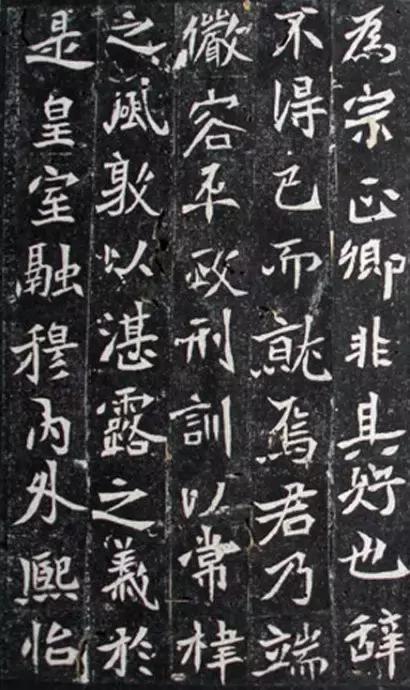 為宗正卿非其好也辭
不得已而就焉君乃端
儼容平政刑訓以常棣
之風敦以湛露之義於
是皇室融穆內外熙怡